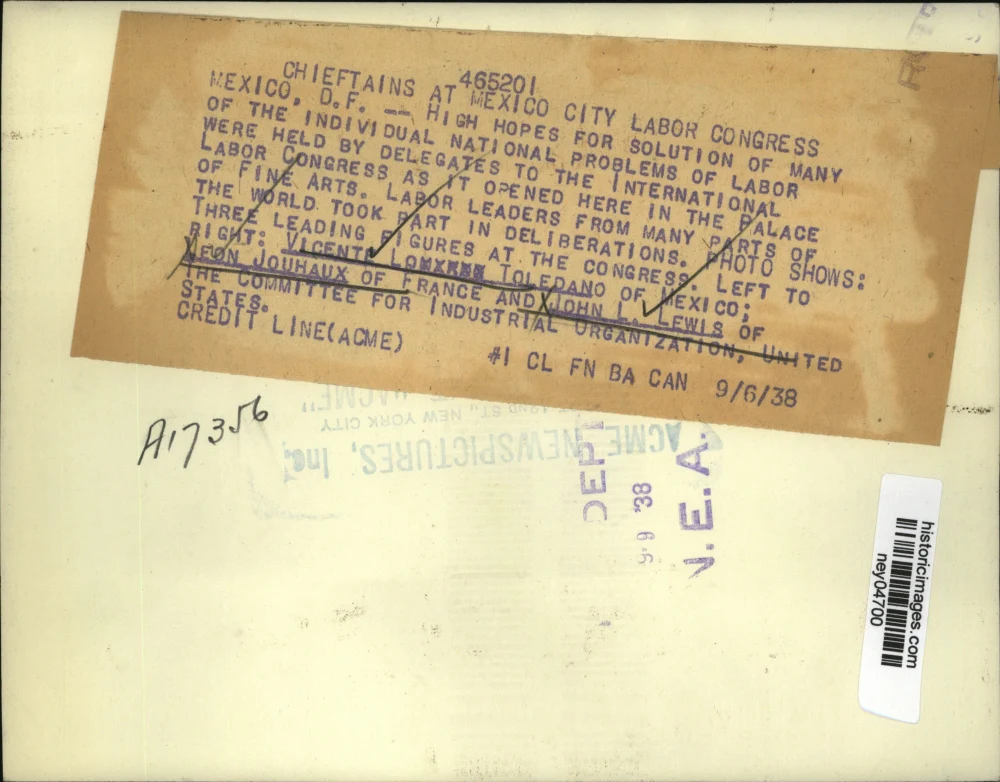 465201
CHIEFTAINS AT MEXICO CITY LABOR CONGRESS
MEXICO, D.F. -- HIGH HOPES FOR SOLUTION OF MANY
OF THE INDIVIDUAL NATIONAL PROBLEMS OF LABOR
WERE HELD BY DELEGATES TO THE INTERNATIONAL
LABOR CONGRESS AS IT OPENED HERE IN THE PALACE
OF FINE ARTS. LABOR LEADERS FROM MANY PARTS OF
THE WORLD TOOK PART IN DELIBERATIONS. PHOTO SHOWS:
THREE LEADING FIGURES AT THE CONGRESS. LEFT TO
RIGHT: VICENTE LOMXXXX TOLEDANO OF MEXICO;
LEON JOUHAUX OF FRANCE AND JOHN L. LEWIS OF
THE COMMITTEE FOR INDUSTRIAL ORGANIZATION, UNITED
STATES.
CREDIT LINE(ACME)
#1 CL FN BA CAN 9/6/38
A17356
"ACME"
42ND ST., NEW YORK CITY
ACME NEWSPICTURES, Inc.
DEPT
'38
N.E.A.
historicimages.com
ney04700